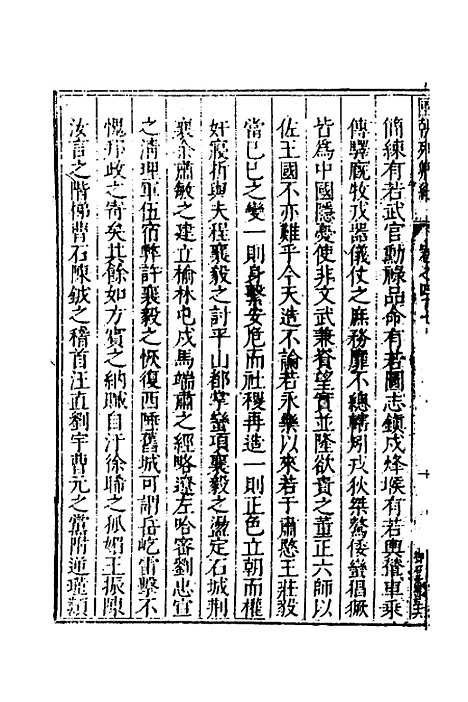 國朝列卿紀 卷之四十七
簡練有若武官勳祿品命有若圖志鎮戍烽堠有若輿輦車乘
傳驛廐牧戎器儀仗之庶務靡不總轄矧戎狄桀驁倭蠻猖獗
皆為中國隱憂使非文武兼資望實並隆欲責之董正六師以
佐王國不亦難乎今天造不論若永樂以來若于肅愍王莊毅
當己巳之變一則身繫安危而社稷再造一則正色立朝而權
奸寢折與夫程襄毅之討平山都掌蠻項襄毅之盪定石城荆
襄余肅敏之建立榆林屯戍馬端肅之經略遼左哈密劉忠宣
之清理軍伍宿弊許襄毅之恢復西陲舊城可謂岳屹雷擊不
愧邦政之寄矣其餘如方賓之納賊自汙徐晞之孤媚王振陳
汝言之階悌曹石陳鉞之稽首汪直劉宇曹元之黨附逆瑾類